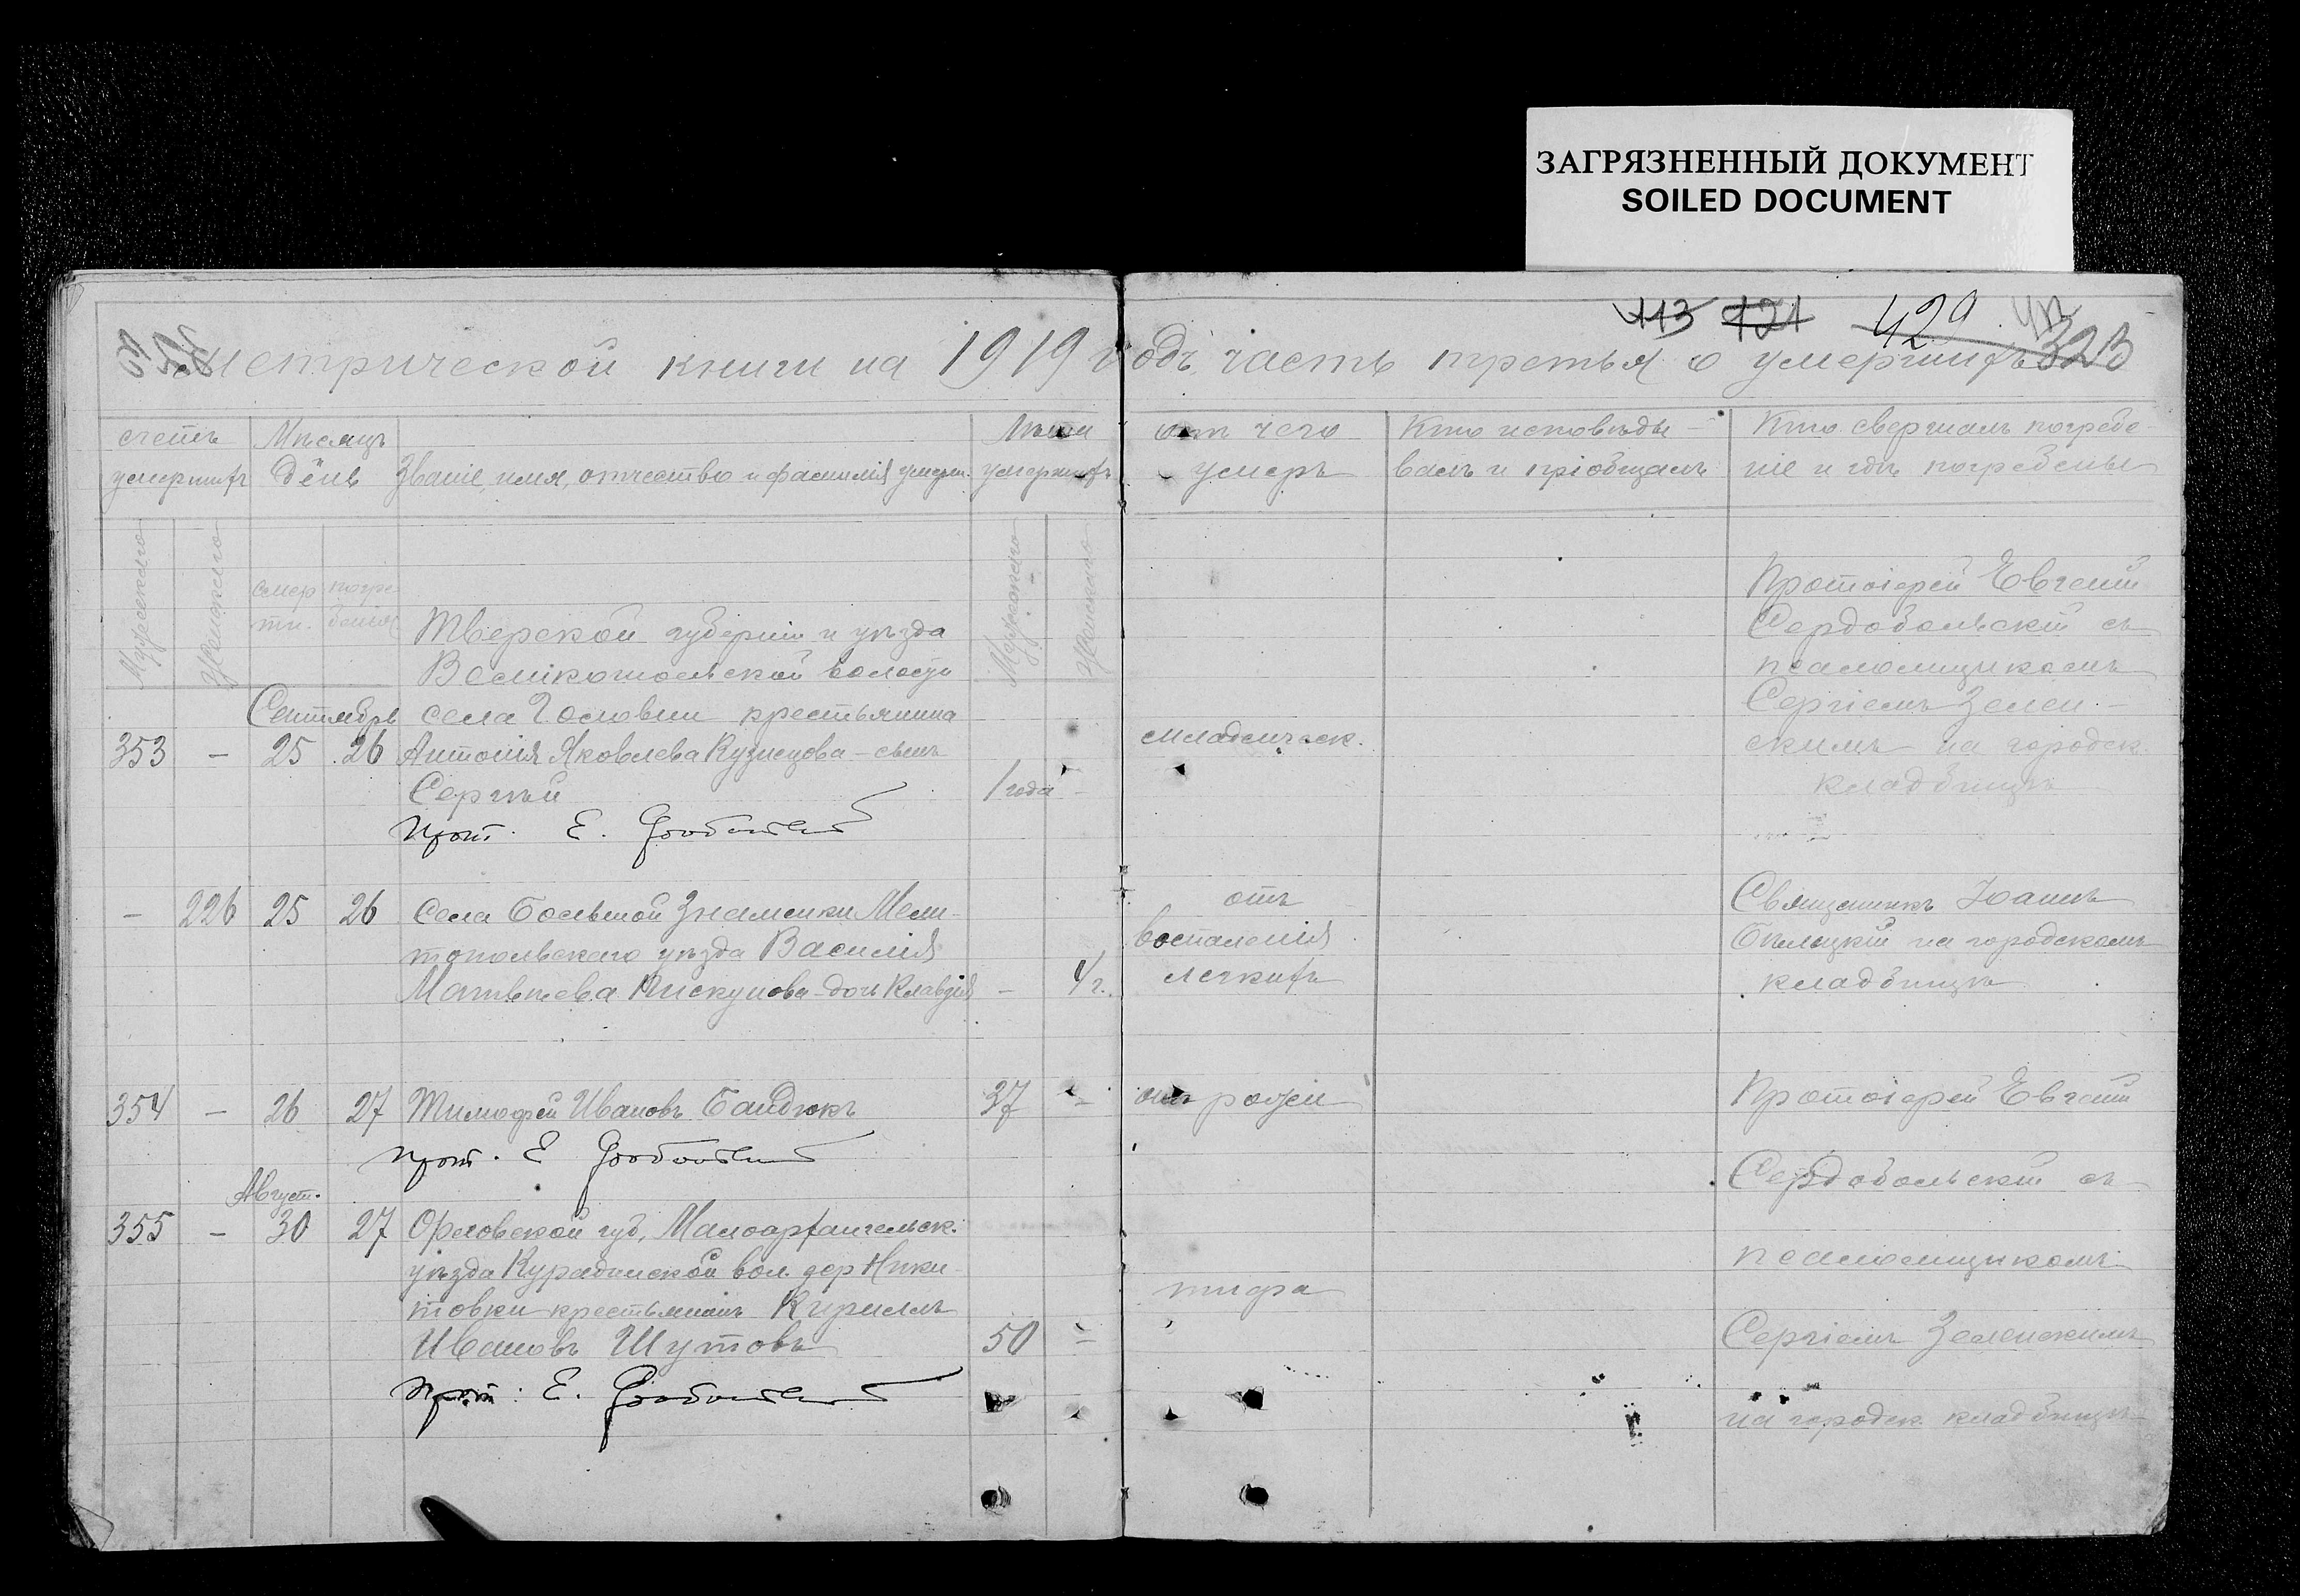 ЗАГРЯЗНЕННЫЙ ДОКУМЕНТ
SOILED DOCUMENT
113 121 429 323
метрической книги на 1919 годъ, часть третья о умершихъ
счетъ умершихъ
Мѣсяцъ день
Званіе, имя, отчество и фамилія умерш.
Лѣта умершихъ
отъ чего умеръ
Кто исповѣды-
валъ и пріобщалъ
Кто свершалъ погребе-
ніе и гдѣ погребены
Мужескаго
Женскаго
смер
ти.
погре
бенія
Мужескаго
Женскаго
Тверской губерніи и уѣзда
волости
Сентябрь села крестьянина
353 - 25 26 Антонія Яковлева Кузнецова - сынъ
Сергѣй 1 года -
младенческ.
Протоіерей Евгеній
Сердобольскій съ
псаломщикомъ
Сергіемъ Зелен-
скимъ на городск.
кладбищѣ
Прот. Е.
- 226 25 26 Села Большой Знаменки Мели-
топольскаго уѣзда Василія
Матвѣева Пискунова - дочь Клавдія - 4 г.
отъ
воспаленія
легкихъ
Священникъ Іоаннъ
на городскомъ
кладбищѣ
354 - 26 27 Тимофей Ивановъ Бандюкъ 37 -
отъ рожи
Протоіерей Евгеній
Прот. Е
Сердобольскій съ
Август.
355 - 30 27 Орловской губ, Малоархангельск.
уѣзда вол. дер Ники-
товки крестьянинъ Кириллъ
Ивановъ Шутовъ 50 -
тифа
псаломщикомъ
Сергіемъ Зеленскимъ
на городск. кладбищѣ
Прот. Е.